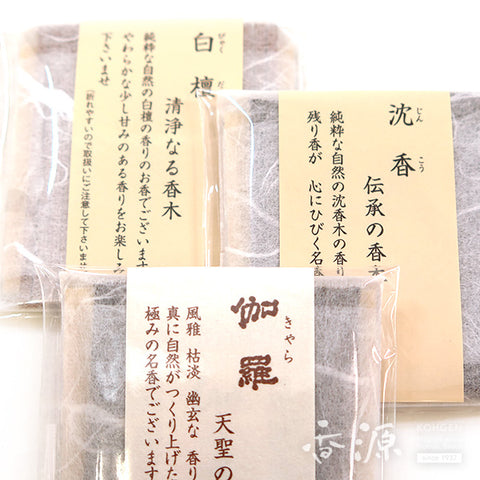 びゃく
白檀
清浄なる香木
純粋な自然の白檀の香りのお香でございます
やわらかな少し甘みのある香りをお楽しみ
下さいませ
(折れやすいので取扱いにご注意して下さいませ
じん こう
沈香
伝承の香木
純粋な自然の沈香木の香り
残り香が 心にひびく名香
きゃら
伽羅
天聖の
風雅 枯淡 幽玄な 香り
真に自然がつくり上げた
極みの名香でございます
香源
KOHGEN
since 1937